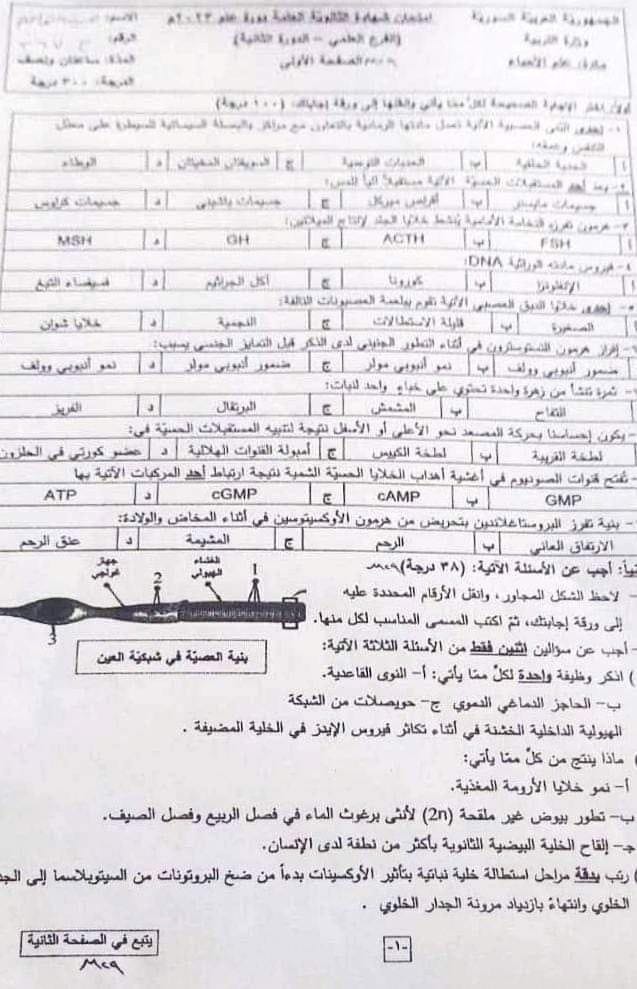 الجمهورية العربية السورية
وزارة التربية
مادة: علم الأحياء
امتحان شهادة الثانوية العامة دورة عام ٢٠٢٣م
(الفرع العلمي – الدورة الثانية)
الصفحة الأولى
الاسم:
الرقم:
المدة: ساعتان ونصف
الدرجة: ٣٠٠ درجة
أولاً: اختر الإجابة الصحيحة لكل ممّا يأتي وانقلها إلى ورقة إجابتك: (١٠٠ درجة)
١- إحدى البنى العصبية الآتية تعمل مادتها الرمادية بالتعاون مع مراكز بالبصلة السيسائية للسيطرة على معدل
التنفس وعمقه:
أ الحدبة الحلقية ب الحدبات التوءمية ج السويقتان المخيتان د الوطاء
٢- يعد أحد المستقبلات الحسيّة الآتية مستقبلاً آلياً للمس:
أ جسيمات مايسنر ب أقراص ميركل ج جسيمات باشيني د جسيمات كراوس
٣- هرمون تفرزه النخامة الأمامية ينشط خلايا الجلد لإنتاج الميلانين:
أ FSH ب ACTH ج GH د MSH
٤- فيروس مادته الوراثية DNA:
أ الإنفلونزا ب كورونا ج آكل الجراثيم د فسيفساء التبغ
٥- إحدى خلايا الدبق العصبي الآتية تقوم ببلعمة العصبونات التالفة:
أ الصغيرة ب قليلة الاستطالات ج النجمية د خلايا شوان
٦- إفراز هرمون التستوسترون في أثناء التطور الجنيني لدى الذكر قبل التمايز الجنسي يسبب:
ضمور أنبوبي وولف ب نمو أنبوبي مولر ج ضمور أنبوبي مولر د نمو أنبوبي وولف
- ثمرة تنشأ من زهرة واحدة تحتوي على خباءٍ واحد لنبات:
التفاح ب المشمش ج البرتقال د الفريز
- يكون إحساسنا بحركة المصعد نحو الأعلى أو الأسفل نتيجة لتنبيه المستقبلات الحسيّة في:
لطخة القريبة ب لطخة الكييس ج أمبولة القنوات الهلالية د عضو كورتي في الحلزون
- تفتح قنوات الصوديوم في أغشية أهداب الخلايا الحسيّة الشمية نتيجة ارتباط أحد المركبات الآتية بها
GMP ب cAMP ج cGMP د ATP
- بنية تفرز البروستاغلاندين بتحريض من هرمون الأوكسيتوسين في أثناء المخاض والولادة:
الارتفاق العاني ب الرحم ج المشيمة د عنق الرحم
نياً: أجب عن الأسئلة الآتية: (٣٨ درجة)
- لاحظ الشكل المجاور، وانقل الأرقام المحددة عليه
إلى ورقة إجابتك، ثمّ اكتب المسمى المناسب لكل منها.
1
الغشاء
الهيولي
2
جهاز
غولجي
3
بنية العصيّة في شبكيّة العين
- أجب عن سؤالين اثنين فقط من الأسئلة الثلاثة الآتية:
) اذكر وظيفة واحدة لكلّ ممّا يأتي: أ- النوى القاعدية.
ب- الحاجز الدماغي الدموي ج- حويصلات من الشبكة
الهيولية الداخلية الخشنة في أثناء تكاثر فيروس الإيدز في الخلية المضيفة .
) ماذا ينتج من كلّ ممّا يأتي:
أ- نمو خلايا الأرومة المغذية.
ب- تطور بيوض غير ملقحة (2n) لأنثى برغوث الماء في فصل الربيع وفصل الصيف.
ج- إلقاح الخلية البيضية الثانوية بأكثر من نطفة لدى الإنسان.
) رتب بدقة مراحل استطالة خلية نباتية بتأثير الأوكسينات بدءاً من ضخ البروتونات من السيتوبلاسما إلى الجد
الخلوي وانتهاءً بازدياد مرونة الجدار الخلوي .
-١-
يتبع في الصفحة الثانية